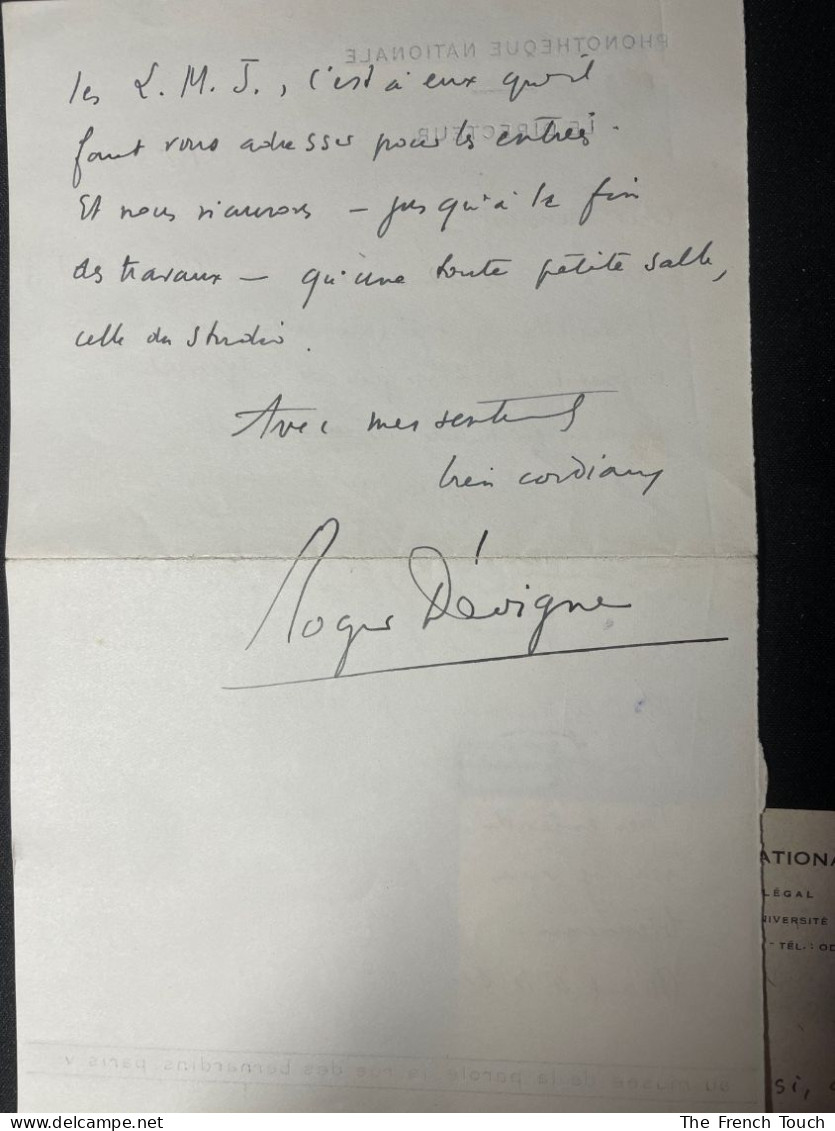 PHONOTHEQUE NATIONALE
LE DIRECTEUR
les L. M. J., c'est à eux qu'il
faut vous adresser pour les entrées.
Et nous n'aurons – jusqu'à la fin
des travaux – qu'une toute petite salle,
celle du studio.
Avec mes sentiments
bien cordiaux
Roger Dévigne
au musée de la parole rue des bernardins, paris v
ATIONA
LÉGAL
IVERSITÉ
- TÉL. : OD
si,
The French Touch